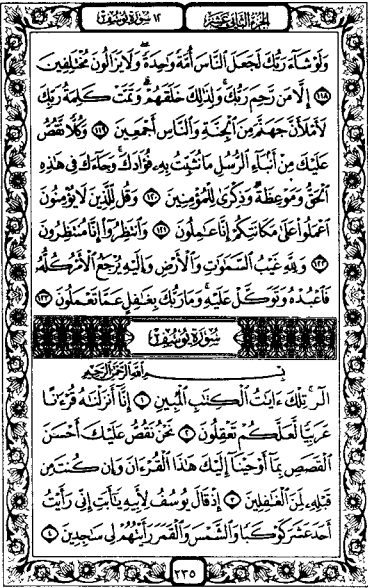 الجزء الثاني عشر
١٢ سورة يوسف
وَلَوْ شَآءَ رَبُّكَ لَجَعَلَ ٱلنَّاسَ أُمَّةً وَٰحِدَةً ۖ وَلَا يَزَالُونَ مُخْتَلِفِينَ
﴿١١٨﴾ إِلَّا مَن رَّحِمَ رَبُّكَ ۚ وَلِذَٰلِكَ خَلَقَهُمْ ۗ وَتَمَّتْ كَلِمَةُ رَبِّكَ
لَأَمْلَأَنَّ جَهَنَّمَ مِنَ ٱلْجِنَّةِ وَٱلنَّاسِ أَجْمَعِينَ ﴿١١٩﴾ وَكُلًّا نَّقُصُّ
عَلَيْكَ مِنْ أَنۢبَآءِ ٱلرُّسُلِ مَا نُثَبِّتُ بِهِۦ فُؤَادَكَ ۚ وَجَآءَكَ فِى هَٰذِهِ
ٱلْحَقُّ وَمَوْعِظَةٌ وَذِكْرَىٰ لِلْمُؤْمِنِينَ ﴿١٢٠﴾ وَقُل لِّلَّذِينَ لَا يُؤْمِنُونَ
ٱعْمَلُوا۟ عَلَىٰ مَكَانَتِكُمْ إِنَّا عَٰمِلُونَ ﴿١٢١﴾ وَٱنتَظِرُوٓا۟ إِنَّا مُنتَظِرُونَ
﴿١٢٢﴾ وَلِلَّهِ غَيْبُ ٱلسَّمَٰوَٰتِ وَٱلْأَرْضِ وَإِلَيْهِ يُرْجَعُ ٱلْأَمْرُ كُلُّهُۥ
فَٱعْبُدْهُ وَتَوَكَّلْ عَلَيْهِ ۚ وَمَا رَبُّكَ بِغَٰفِلٍ عَمَّا تَعْمَلُونَ ﴿١٢٣﴾
سورة يوسف
بِسْمِ ٱللَّهِ ٱلرَّحْمَٰنِ ٱلرَّحِيمِ
الٓر ۚ تِلْكَ ءَايَٰتُ ٱلْكِتَٰبِ ٱلْمُبِينِ ﴿١﴾ إِنَّآ أَنزَلْنَٰهُ قُرْءَٰنًا
عَرَبِيًّا لَّعَلَّكُمْ تَعْقِلُونَ ﴿٢﴾ نَحْنُ نَقُصُّ عَلَيْكَ أَحْسَنَ
ٱلْقَصَصِ بِمَآ أَوْحَيْنَآ إِلَيْكَ هَٰذَا ٱلْقُرْءَانَ وَإِن كُنتَ مِن
قَبْلِهِۦ لَمِنَ ٱلْغَٰفِلِينَ ﴿٣﴾ إِذْ قَالَ يُوسُفُ لِأَبِيهِ يَٰٓأَبَتِ إِنِّى رَأَيْتُ
أَحَدَ عَشَرَ كَوْكَبًا وَٱلشَّمْسَ وَٱلْقَمَرَ رَأَيْتُهُمْ لِى سَٰجِدِينَ ﴿٤﴾
٢٣٥